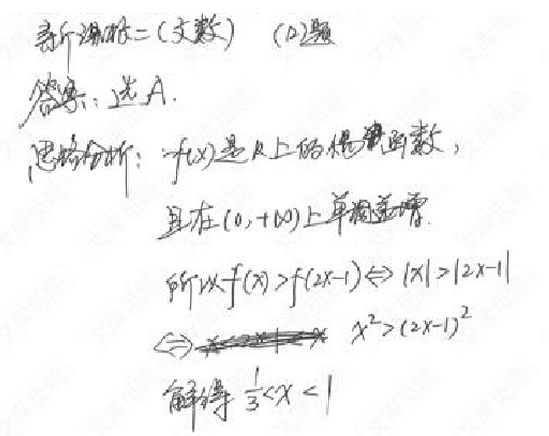 新课标二(文数) (12)题
答案:选A.
思路分析:f(x)是R上的偶函数,
且在(0,+∞)上单调递增.
所以f(x)>f(2x-1)⇔|x|>|2x-1|
⇔ x²>(2x-1)²
解得 1/3<x<1